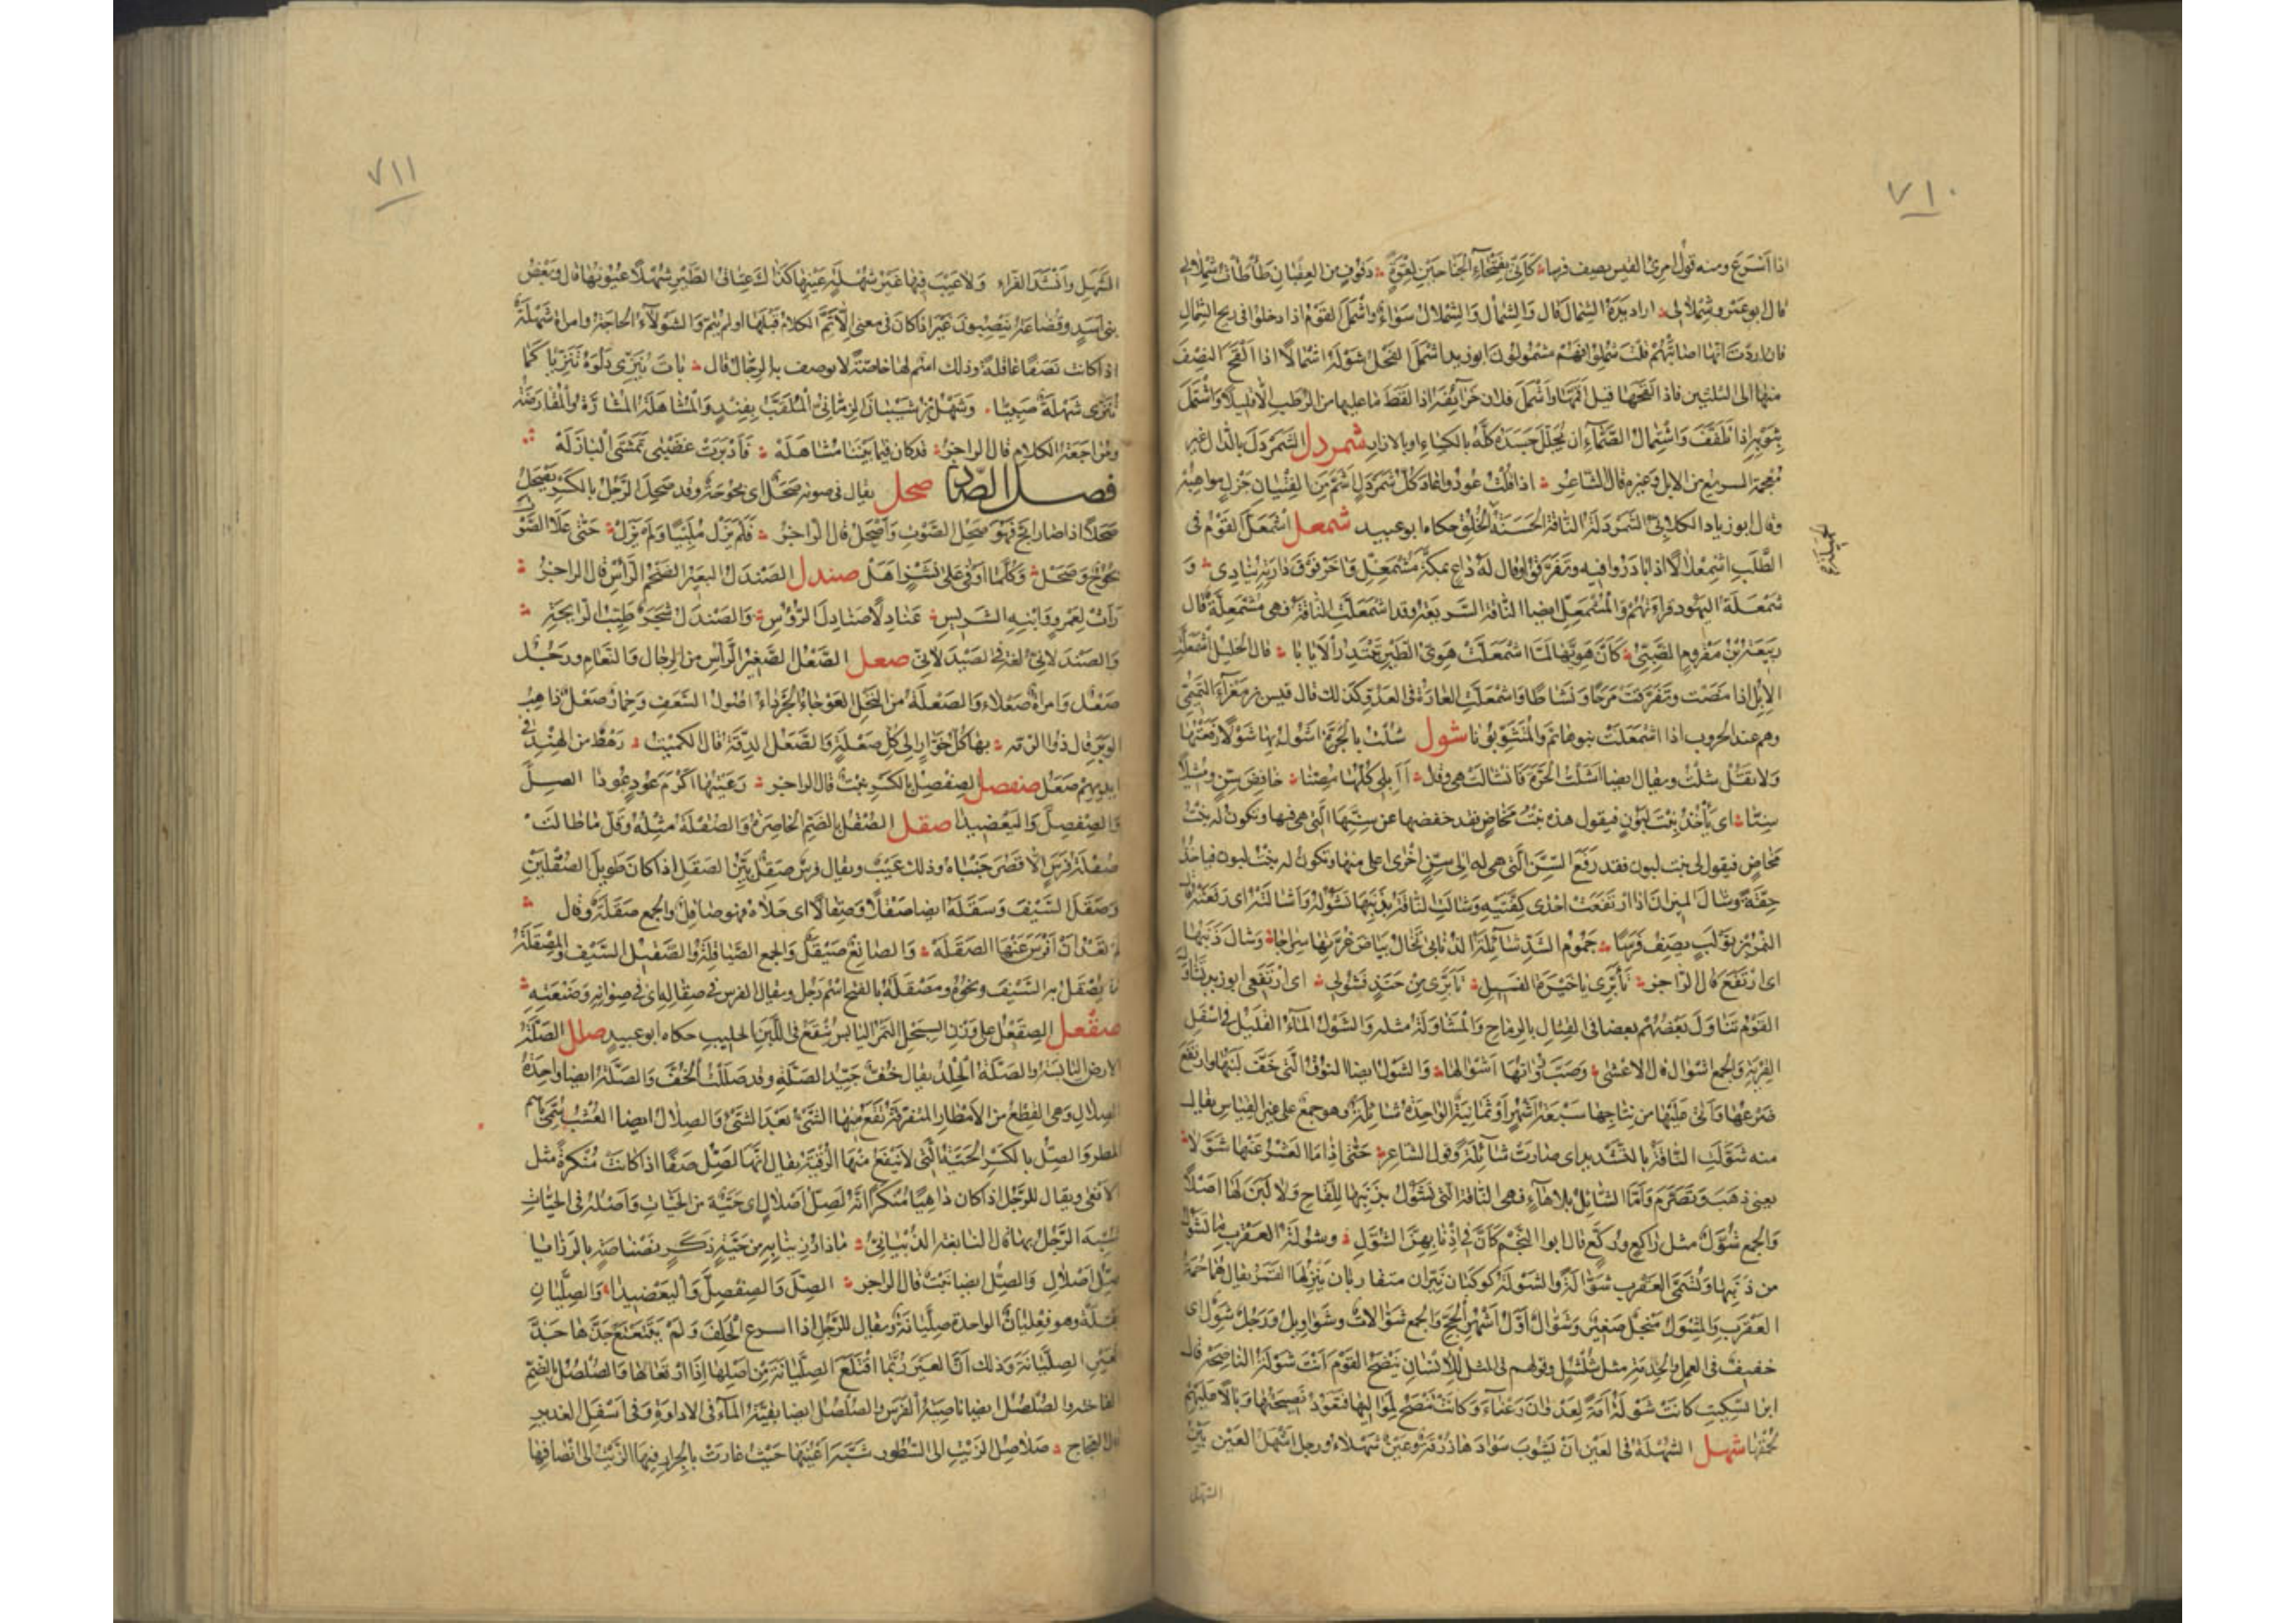 ٧١٠
اذا اسرع ومنه قول امرئ القيس يصف فرسا كَأَنّي بفَتْخاءِ الجَناحين لِقْوَةٍ دَفوفٍ من العِقبان طَأْطأتُ شِملالي
قال ابو عمرو شملالي اراد يده الشمال قال والشِّمال والشملال سواء واشمل القوم اذا دخلوا في ريح الشمال
فان اردت انها اصابتهم قلت شملوا فهم مشمولون ابو زيد اشمل الفحل شوله اشمالا اذا القح النصف
منها الى الثلثين فاذا القحها قيل اقمّها واشمل فلان خرائفه اذا لقط ما عليها من الرطب الا قليلا واشتمل
بثوبه اذا تلفف واشتمال الصماء ان يجلل جسده كله بالكساء او بالازار شمردل الشمردل بالدال غير
معجمة السريع من الابل وغيره قال الشاعر اذا قلت عودوا عاد كل شمردل اشم من الفتيان جزل مواهبه
وقال ابو زياد الكلابي الشمردلة الناقة الحسنة الخلق حكاه ابو عبيد شمعل اشمعل القوم في
الطلب اشمعلالا اذا بادروا فيه وتفرقوا وقال له داع بمكة مشمعل وآخر فوق دارته ينادي و
شمعلة اليهود قراءتهم والمشمعل ايضا الناقة السريعة وقد اشمعلت الناقة فهي مشمعلة قال
ربيعة بن مقروم الضبي كأن هويها لما اشمعلت هوي الطير تبتدر الايابا قال الخليل اشمعلت
الابل اذا مضت وتفرقت مرحا ونشاطا واشمعلت الغارة في العدو كذلك قال قيس بن مغراء التميمي
وهم عند الحروب اذا اشمعلت بنوها ثم والمتثوبونا شول شلت بالجرة اشول بها شولا رفعتها
ولا تقل شلت ويقال ايضا اشلت الجرة فانشالت هي وقال أابلي تأكلها مصنا خافض سن ومشيلا
سنا اي يأخذ بنت لبون فيقول هذه بنت مخاض فقد خفضها عن سنها التي هي فيها وتكون له بنت
مخاض فيقول لي بنت لبون فقد رفع السن التي هي له الى سن اخرى اعلى منها وتكون له بنت لبون فياخذ
حقة وشال الميزان اذا ارتفعت احدى كفتيه وشالت الناقة بذنبها تشوله واشالته اي رفعته قال
النمر بن تولب يصف فرسا جموم الشد شائلة الذنابى تخال بياض غرتها سراجا وشال ذنبها
اي ارتفع قال الراجز تأبري يا خيرة الفسيل تأبري من حنذ فشولي اي ارتفعي ابو زيد تشاول
القوم تناول بعضهم بعضا في القتال بالرماح والمشاولة مثله والشول الماء القليل في اسفل
القربة والجمع اشوال قال الاعشى وصب رواتها اشوالها والشول ايضا النوق التي خف لبنها وارتفع
ضرعها واتى عليها من نتاجها سبعة اشهر او ثمانية الواحدة شائلة وهو جمع على غير القياس يقال
منه شولت الناقة بالتشديد اي صارت شائلة وقول الشاعر حتى اذا ما العشر عنها شولا
يعني ذهب وتصرم واما الشائل بلا هاء فهي الناقة التي تشول بذنبها للقاح ولا لبن لها اصلا
والجمع شول مثل راكع وركع قال ابو النجم كأن في اذنابهن الشول وشولة العقرب ما تشول
من ذنبها وتسمى العقرب شوالة والشولة كوكبان نيران متقاربان ينزلها القمر يقال لهما حمة
العقرب والمشول منجل صغير وشوال اول اشهر الحج والجمع شوالات وشواويل ورجل شول اي
خفيف في العمل والخدمة مثل شلشل وقولهم في المثل للانسان ينصح القوم انت شولة الناصحة قال
ابن السكيت كانت شولة امة لعدوان رعناء وكانت تنصح لمواليها فتعود نصيحتها وبالا عليهم
لحمقها شهل الشهلة في العين ان يشوب سوادها زرقة وعين شهلاء ورجل اشهل العين بين
الشهل
٧١١
الشهل وانشد الفراء ولا عيب فيها غير شهلة عينها كذاك عتاق الطير شهلا عيونها قال وبعض
بني اسد وقضاعة ينصبون غير اذا كان في معنى الا تم الكلام قبلها او لم يتم والشهلاء الحاجة وامراة شهلة
اذا كانت نصفا عاقلة وذلك اسم لها خاصة لا يوصف به الرجال قال باتت تنزي دلوه تنزيا كما
تنزي شهلة صبيا وشهل بن شيبان الزماني الملقب بفند والمشاهلة المشارة والمقارضة
ومراجعة الكلام قال الراجز قد كان فيما بيننا مشاهلة فادبرت غضبى تمشى البازلة
فصل الصاد صحل يقال في صوته صحل اي بحوحة وقد صحل الرجل بالكسر يصحل
صحلا اذا صار ابح فهو صحل الصوت واصحل قال الراجز فلم يزل ملبيا ولم يزل حتى علا الصوت
بحوح وصحل وكلما اوفى على نشز اهل صندل الصندل البعير الضخم الراس قال الراجز
رأت لعمرو وابنه الشريس عنادلا صنادل الرؤس والصندل شجر طيب الرائحة
والصندلاني لغة في الصيدلاني صعل الصعل الصغير الراس من الرجال والنعام ورجل
صعل وامراة صعلاء والصعلة من النخل العوجاء الجرداء اصول السعف وحمار صعل ذاهب
الوبر قال ذو الرمة بها كل خوار الى كل صعلة والصعل الدقة قال الكميت رهط من الهند في
ايديهم صعل صنفصل الصفصل بالكسر نبت قال الراجز رعيتها اكرم عود عودا الصل
والصفصل واليعضيدا صقل الصقل بالضم الخاصرة والصقلة مثله وقل ما طالت
صقلة فرس الا قصر جنباه وذلك عيب ويقال فرس صقل بين الصقل اذا كان طويل الصقلين
وصقل السيف وسقله ايضا صقلا وصقالا اي جلاه فهو صاقل والجمع صقلة وقال
لم تعد ان افرش عنها الصقلة والصانع صيقل والجمع الصياقلة والصقيل السيف والمصقلة
ما يصقل به السيف ونحوه ومصقلة بالفتح اسم رجل ويقال الفرس في صقاله اي في صوانه وصنعته
صقعل الصقعل على وزن السبحل التمر اليابس ينقع في اللبن الحليب حكاه ابو عبيد صلل الصلة
الارض اليابسة والصلة الجلد يقال خف جيد الصلة وقد صللت الخف والصلة ايضا واحدة
الصلال وهي القطع من الامطار المتفرقة تقع منها الشئ بعد الشئ والصلال ايضا العشب يسمى باسم
المطر والصل بالكسر الحية التي لا تنفع منها الرقية يقال انها لصل صفا اذا كانت منكرة مثل
الافعى ويقال للرجل اذا كان داهيا منكرا انه لصل اصلال اي حية من الحيات واصله في الحيات
شبه الرجل بها قال النابغة الذبياني ماذا رزئنا به من حية ذكر نضناضة بالرزايا
صل اصلال والصل ايضا نبت قال الراجز الصل والصفصل واليعضيدا والصليان
بقلة وهو فعليان الواحدة صليانة ويقال للرجل اذا اسرع الحلف ولم يتتعتع جذها جذ
العير الصليانة وذلك ان العير ربما اقتلع الصليانة من اصلها اذا ارتعاها والصلصل بالضم
الفاختة والصلصل ايضا ناصية الفرس والصلصل ايضا بقية الماء في الاداوة وفي اسفل الغدير
قال العجاج صلاصل الزيت الى الشطور شبه اعينها حيث غارت بالجرار فيها الزيت الى انصافها